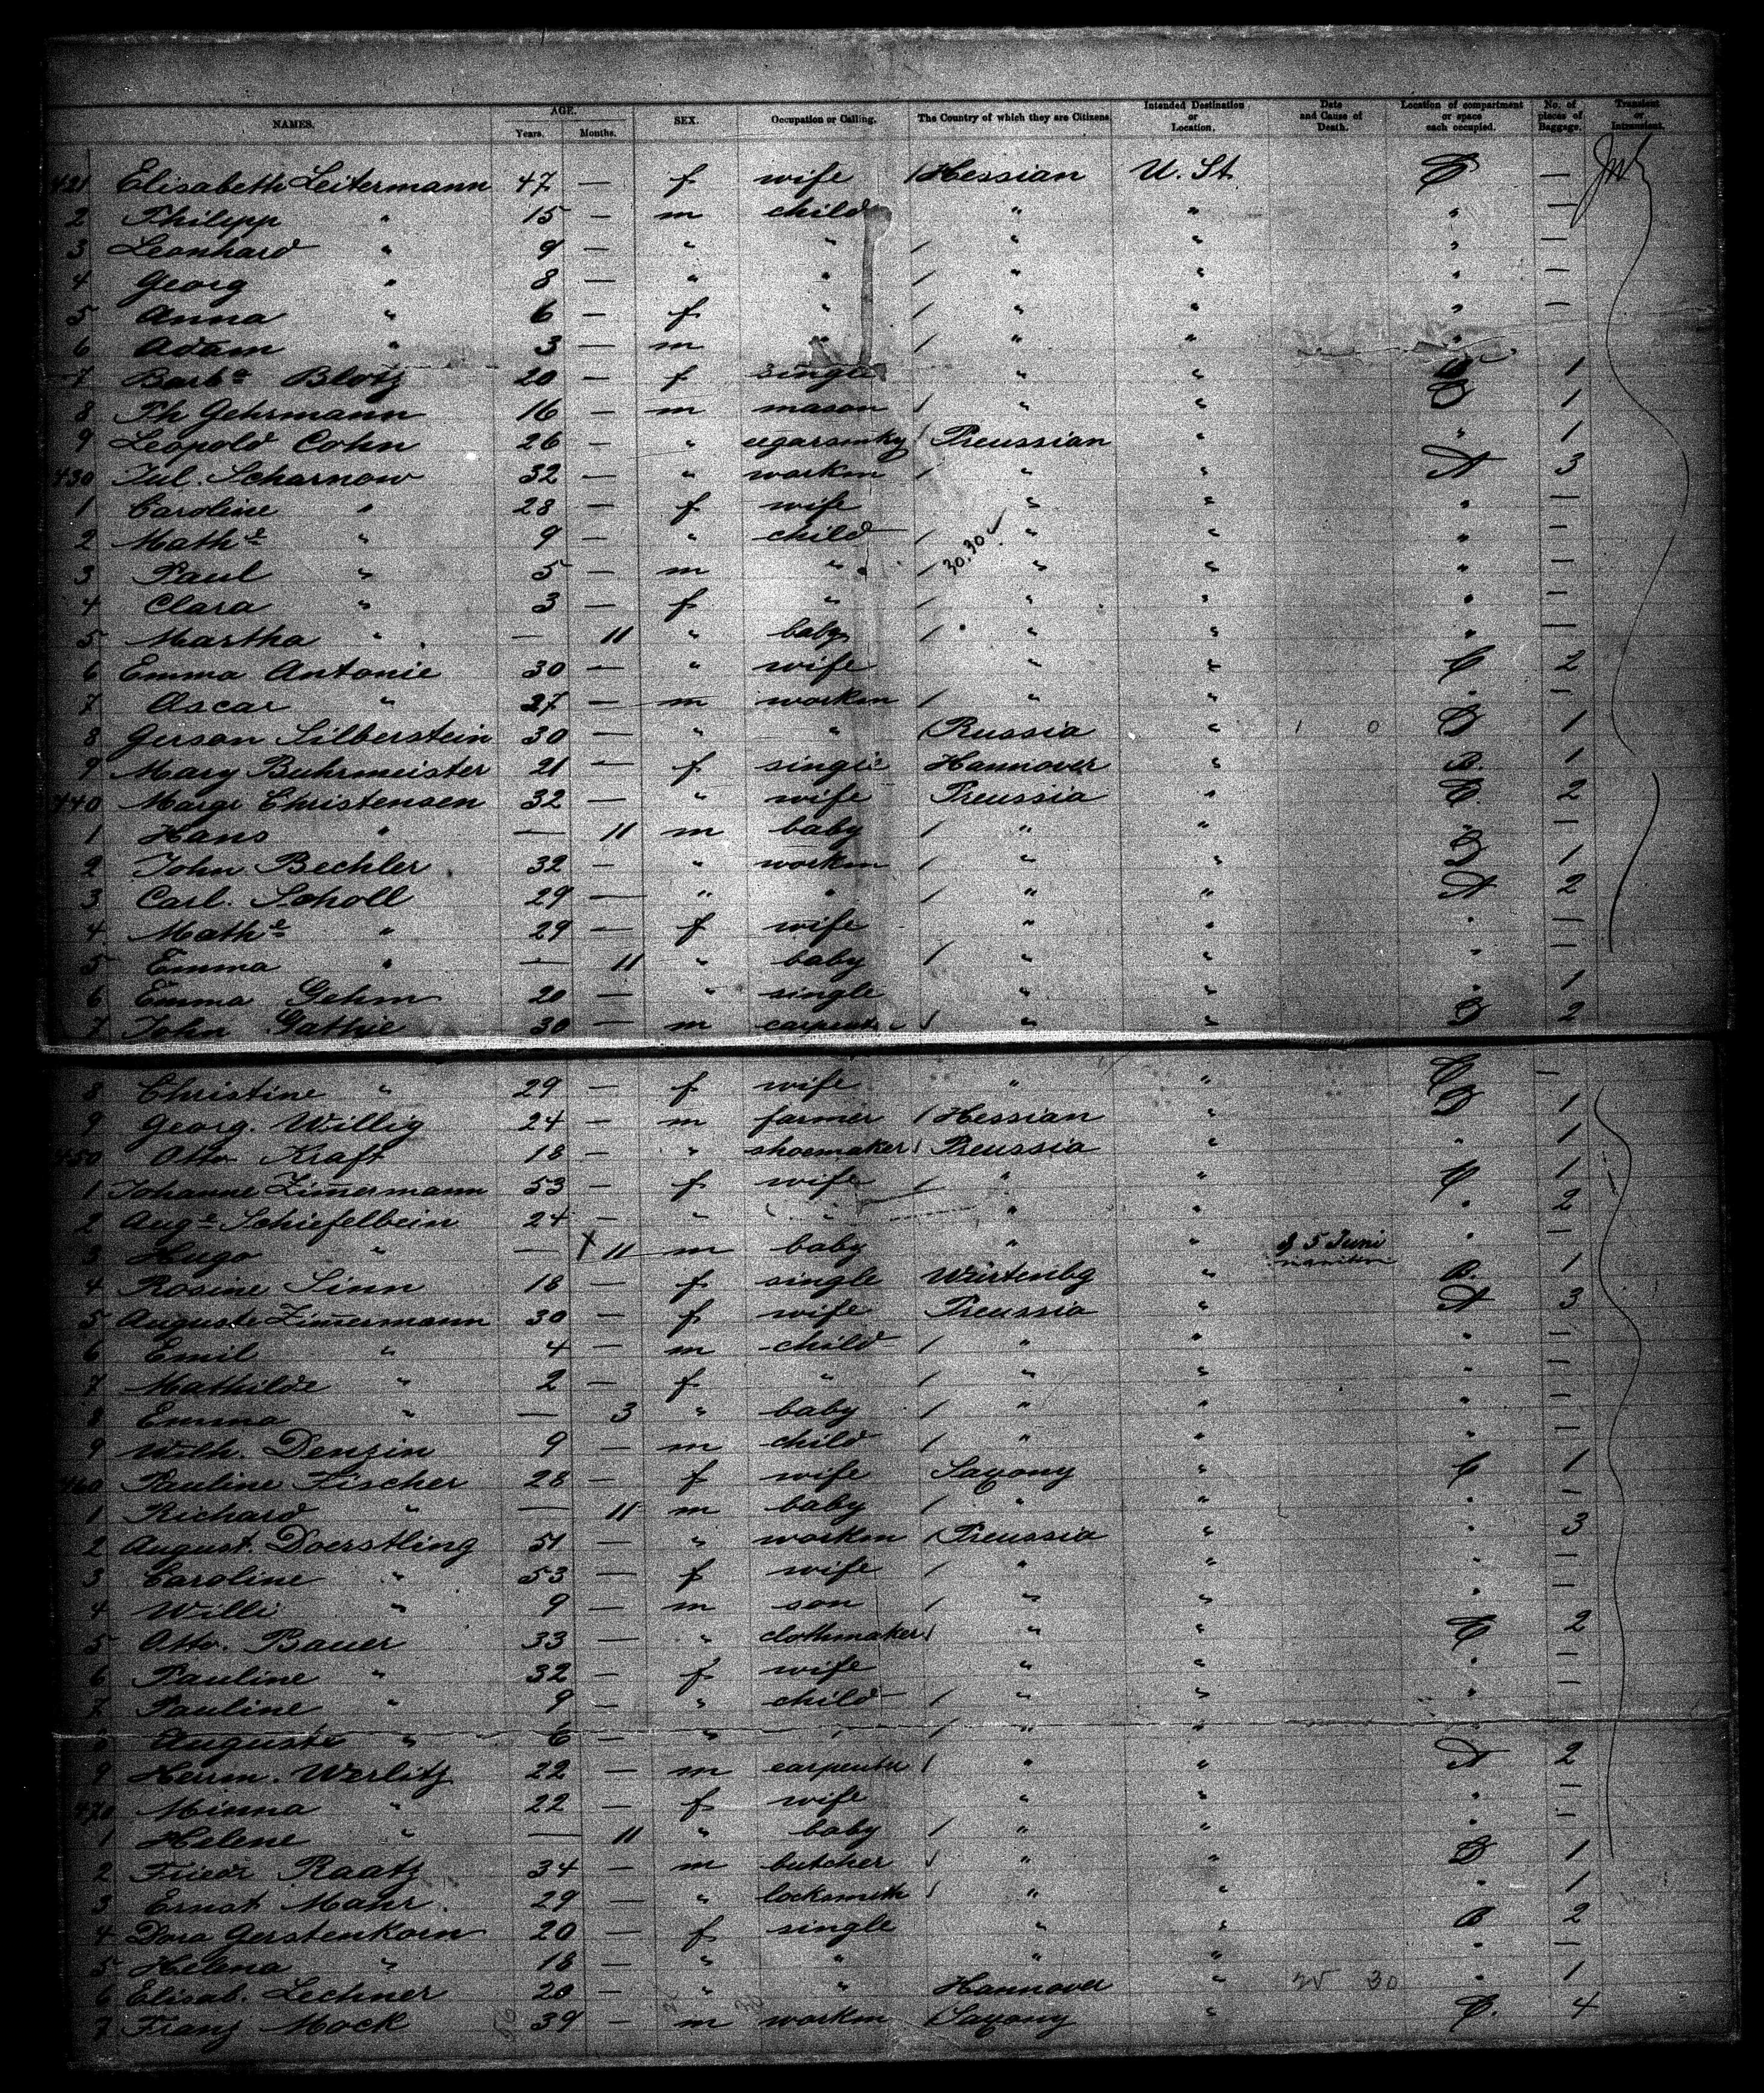 NAMES. AGE. Years. Months. SEX. Occupation or Calling. The Country of which they are Citizens. Intended Destination or Location. Date and Cause of Death. Location of compartment or space each occupied. No. of pieces of Baggage. Transient or Intransient.
421 Elisabeth Leitermann 47 — f wife / Hessian U. St. C —
2 Philipp " 15 — m child " " " —
3 Leonhard " 9 — " " / " " " —
4 Georg " 8 — " " / " " " —
5 Anna " 6 — f " / " " " —
6 Adam " 3 — m " / " " "
7 Barb^a Blotz 20 — f single " " 1
8 Ph Gehrmann 16 — m mason / " " D 1
9 Leopold Cohn 26 — " / Preussian " " 1
430 Jul. Scharnow 32 — " workm / " " A 3
1 Caroline " 28 — f wife " " " —
2 Math^e " 9 — " child / " " " —
3 Paul " 5 — m " / 30.30 " " " —
4 Clara " 3 — f " / " " " —
5 Martha " — 11 " baby / " " " —
6 Emma Antonie 30 — " wife " " C 2
7 Ascar " 27 — m workm / " " " —
8 Gerson Silberstein 30 — " " / Russia " D 1
9 Mary Buhrmeister 21 — f single Hannover " B. 1
440 Margr Christensen 32 — " wife Preussia " C. 2
1 Hans " — 11 m baby / " " " —
2 John Bechler 32 — " workm / " " D 1
3 Carl. Scholl 29 — " " / " " A 2
4 Math^e " 29 — f wife " " " —
5 Emma " — 11 " baby / " " " —
6 Emma Gehm 20 — " single " " " 1
7 John Gathie 30 — m carpent / " " D 2
8 Christine " 29 — f wife " " C —
9 Georg. Willig 24 — m farmer / Hessian " D 1
450 Otto Kraft 18 — " shoemaker / Preussia " " 1
1 Johanne Zimermann 53 — f wife / " " C 1
2 Aug^e Schiefelbein 24 — " " " " " 2
3 Hugo " — 11 m baby " " 5 Juni " —
4 Rosine Sinn 18 — f single Würtenbg " B. 1
5 Auguste Zimermann 30 — f wife Preussia " A 3
6 Emil " 4 — m child / " " " —
7 Mathilde " 2 — f " / " " " —
8 Emma " — 3 " baby / " " " —
9 Wilh. Denzin 9 — m child / " " " —
460 Pauline Fischer 28 — f wife Saxony " C 1
1 Richard " — 11 m baby / " " " —
2 August. Doerstling 51 — " workm / Preussia " " 3
3 Caroline " 53 — f wife / " " " —
4 Willi " 9 — m son / " " " —
5 Otto. Bauer 33 — " clothmaker / " " C 2
6 Pauline " 32 — f wife " " " —
7 Pauline " 9 — " child / " " " —
8 Auguste " 6 — " " / " " "
9 Herrm. Werlitz 22 — m carpenter / " " A 2
470 Minna " 22 — f wife " " " —
1 Helene " — 11 " baby / " " " —
2 Friedr Raatz 34 — m butcher / " " D 1
3 Ernst Mahr. 29 — " locksmith / " " " 1
4 Dora Gerstenkorn 20 — f single " " B 2
5 Helena " 18 — " " " " " —
6 Elisab. Lechner 20 — " " Hannover " 30 " 1
7 Franz Mock 39 — m workm / Saxony " C. 4